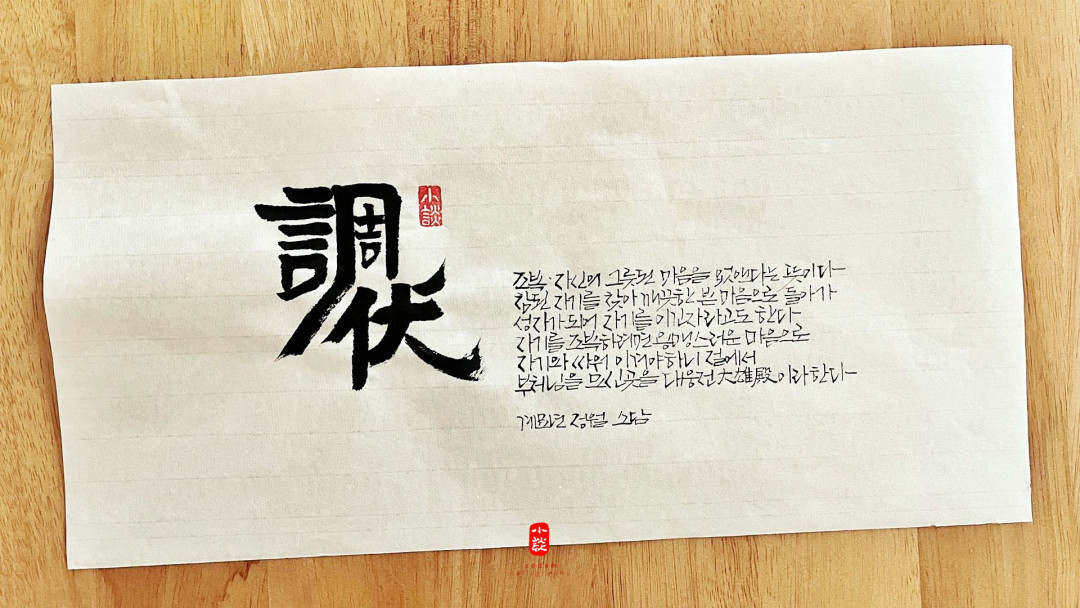 調伏
小談
조복: 자신의 그릇된 마음을 없앤다는 뜻이다
참된 자기를 찾아 깨끗한 본 마음으로 돌아가
성자가 되어 자기를 이긴자라고도 한다
자기를 조복하려면 용맹스러운 마음으로
자기와 싸워 이겨야 하니 절에서
부처님을 모신곳을 대웅전大雄殿이라 한다
계묘년 정월 소담
小談
sodam